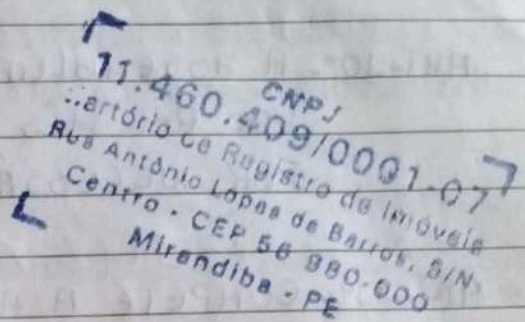 CNPJ
11.460.409/0001-07
Cartório de Registro de Imóveis
Rua Antônio Lopes de Barros, S/N
Centro - CEP 56 980-000
Mirandiba - PE